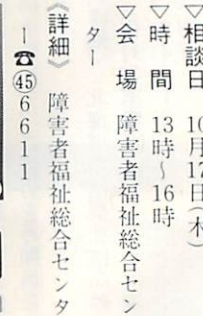 ▽相談日　10月17日（木）
▽時　間　13時～16時
▽会　場　障害者福祉総合セン
ター
《詳細》　障害者福祉総合センタ
ー☎㊺6611